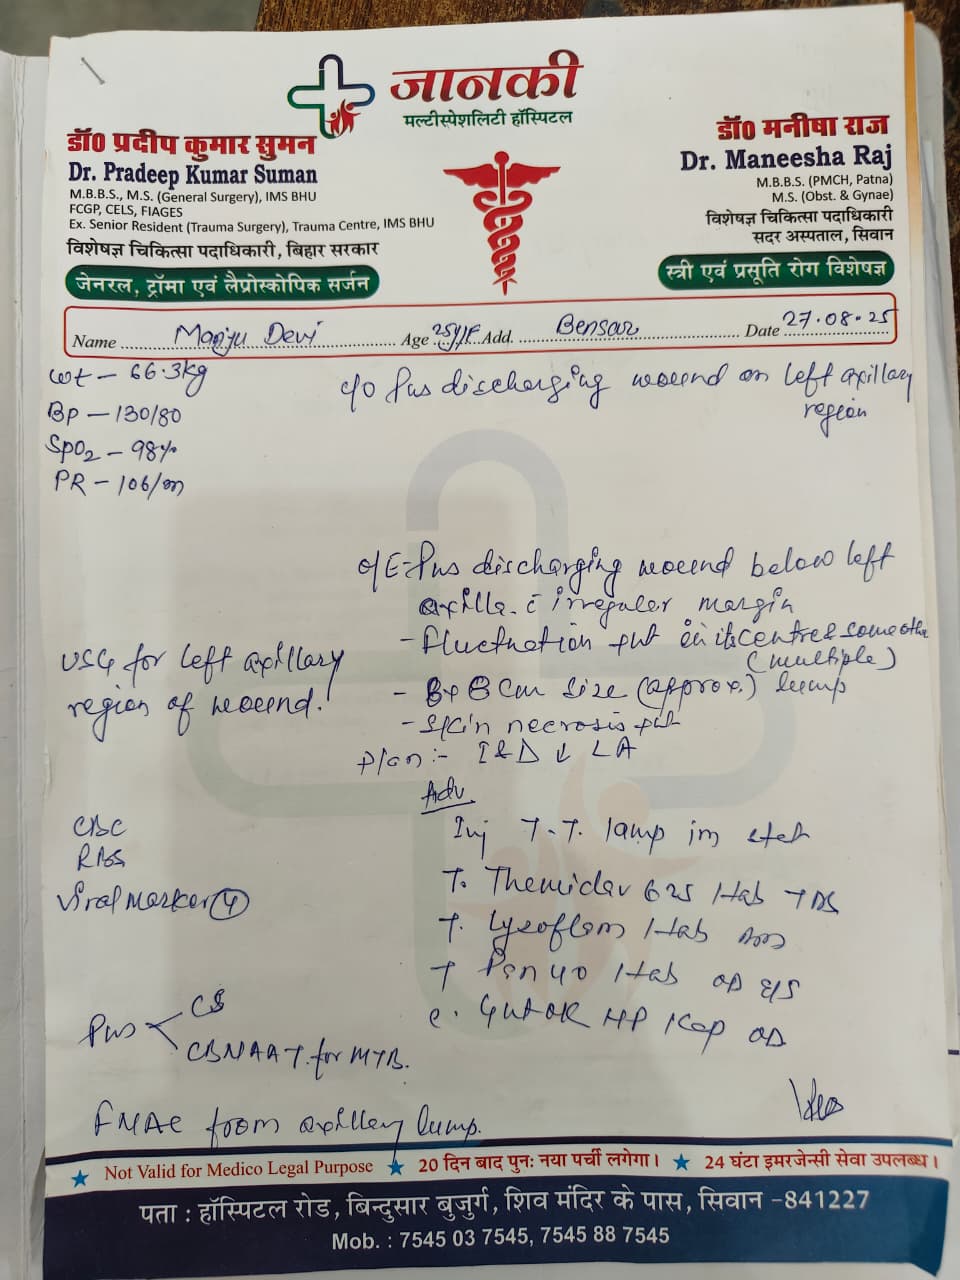 जानकी
मल्टीस्पेशलिटी हॉस्पिटल
डॉ० प्रदीप कुमार सुमन
Dr. Pradeep Kumar Suman
M.B.B.S., M.S. (General Surgery), IMS BHU
FCGP, CELS, FIAGES
Ex. Senior Resident (Trauma Surgery), Trauma Centre, IMS BHU
विशेषज्ञ चिकित्सा पदाधिकारी, बिहार सरकार
जेनरल, ट्रॉमा एवं लैप्रोस्कोपिक सर्जन
डॉ० मनीषा राज
Dr. Maneesha Raj
M.B.B.S. (PMCH, Patna)
M.S. (Obst. & Gynae)
विशेषज्ञ चिकित्सा पदाधिकारी
सदर अस्पताल, सिवान
स्त्री एवं प्रसूति रोग विशेषज्ञ
Name Manju Devi Age 25y/F Add. Bensar Date 27.08.25
wt - 66.3kg
BP - 130/80
SpO2 - 98%
PR - 106/m
c/o Pus discharging wound on left axillary
region
o/E - Pus discharging wound below left
axilla c̄ irregular margin
- Fluctuation pnt in its centre & some other
(multiple)
- 8x8 cm size (approx.) lump
- Skin necrosis pnt
plan :- I&D ↓ LA
USG for left axillary
region of wound.
Adv
Inj T.T. 1amp im stat
T. 625 1tab TDS
T. 1tab
T Pan 40 1tab OD E/S
c. HP 1cap OD
CBC
RBS
Viral marker (4)
Pus CS
CBNAAT for MTB.
FNAC from axillary lump.
Not Valid for Medico Legal Purpose ★ 20 दिन बाद पुनः नया पर्ची लगेगा। ★ 24 घंटा इमरजेन्सी सेवा उपलब्ध।
पता : हॉस्पिटल रोड, बिन्दुसार बुजुर्ग, शिव मंदिर के पास, सिवान -841227
Mob. : 7545 03 7545, 7545 88 7545